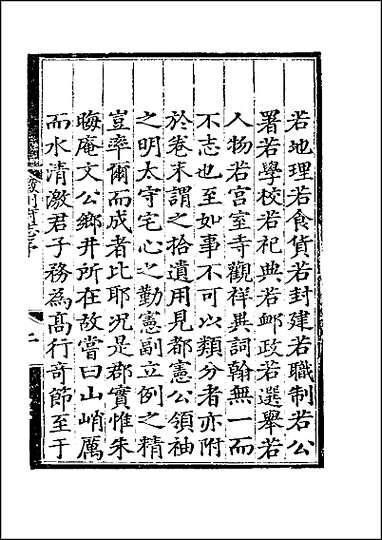 若地理若食貨若封建若職制若公
署若學校若祀典若郵政若選舉若
人物若宮室寺觀祥異詞翰無一而
不志也至如事不可以類分者亦附
於卷末謂之拾遺用見都憲公領袖
之明太守宅心之勤憲副立例之精
豈率爾而成者比耶况是郡實惟朱
晦庵文公鄉井所在故嘗曰山峭厲
而水清激君子務為髙行竒節至于